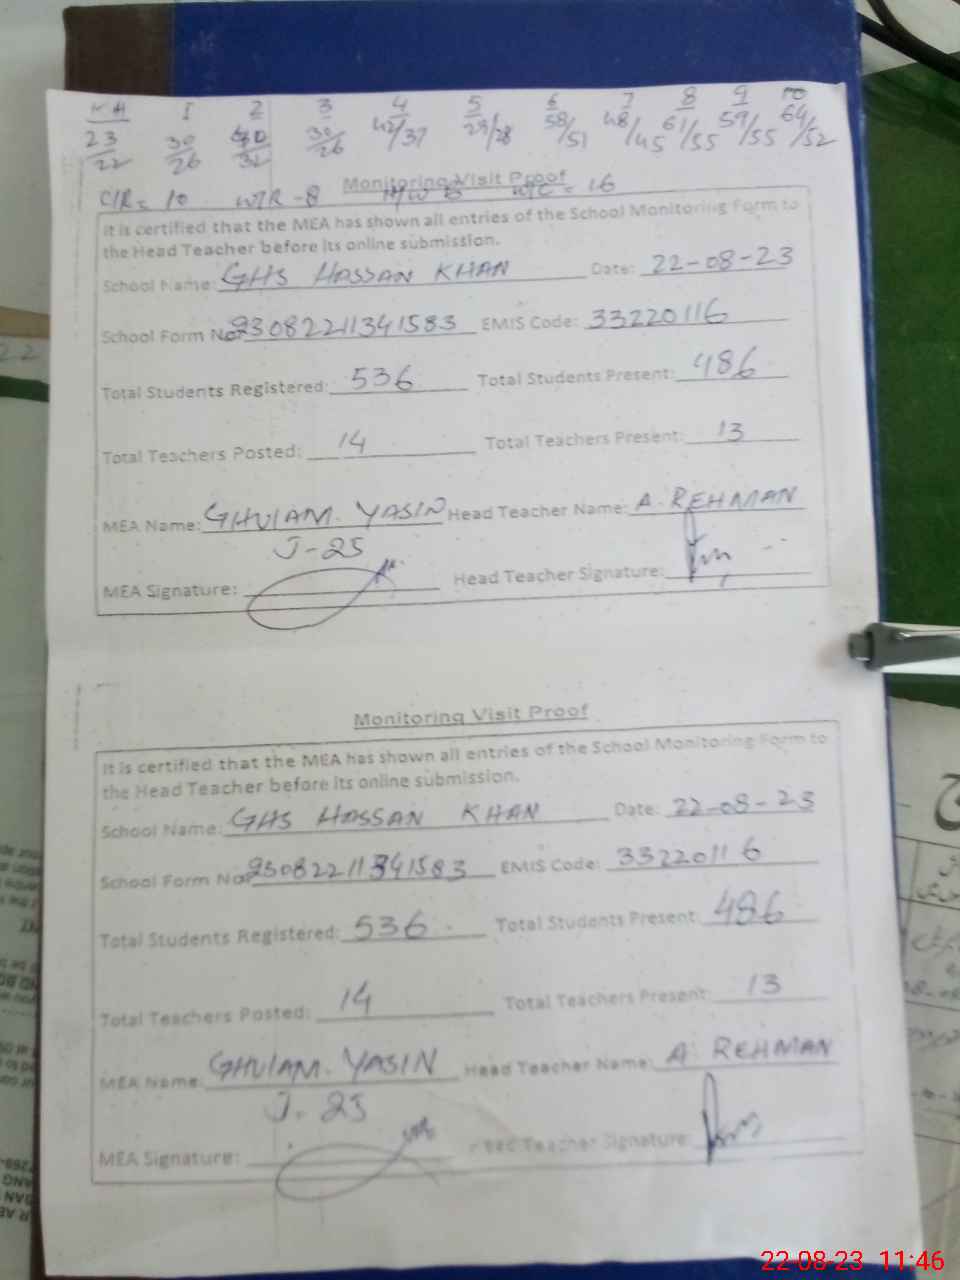 KH 1 2 3 4 5 6 7 8 9 10
23/22 30/26 40/32 30/26 42/37 29/28 58/51 48/45 61/55 59/55 64/52
C/R= 10 W/R -8 W/C = 16
Monitoring Visit Proof
It is certified that the MEA has shown all entries of the School Monitoring Form to
the Head Teacher before its online submission.
School Name: GHS HASSAN KHAN Date: 22-08-23
School Form No: 23082211341583 EMIS Code: 33220116
Total Students Registered: 536 Total Students Present: 486
Total Teachers Posted: 14 Total Teachers Present: 13
MEA Name: GHULAM. YASIN Head Teacher Name: A. REHMAN
J-25
MEA Signature: Head Teacher Signature:
Monitoring Visit Proof
It is certified that the MEA has shown all entries of the School Monitoring Form to
the Head Teacher before its online submission.
School Name: GHS HASSAN KHAN Date: 22-08-23
School Form No: 23082211341583 EMIS Code: 33220116
Total Students Registered: 536 Total Students Present: 486
Total Teachers Posted: 14 Total Teachers Present: 13
MEA Name: GHULAM. YASIN Head Teacher Name: A. REHMAN
J-25
MEA Signature: Head Teacher Signature:
22-08-23 11:46